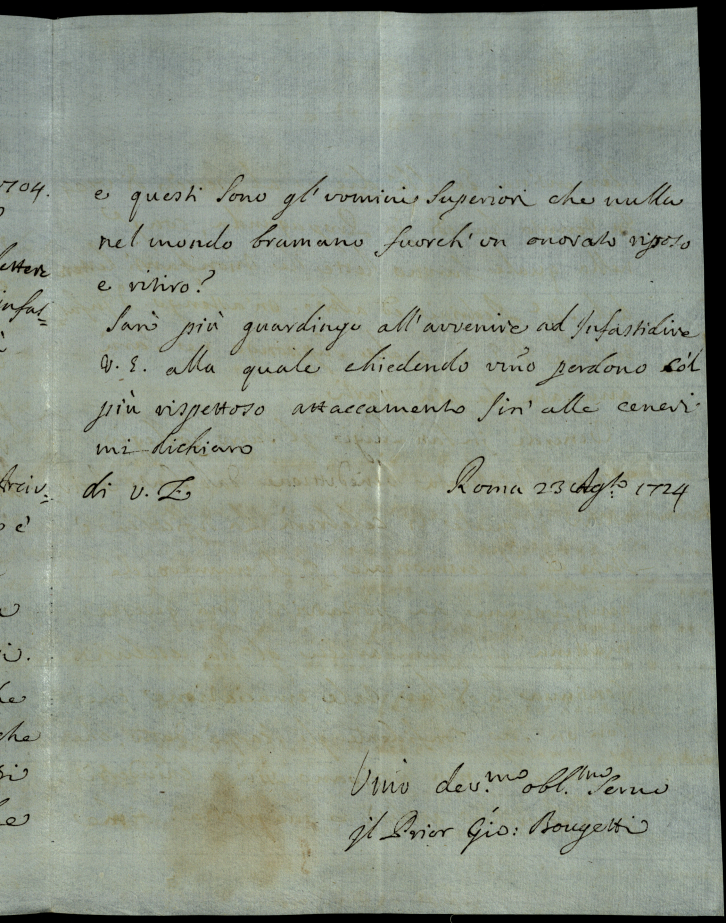 1704.
e questi sono gl' uomini Superiori che nulla
nel mondo bramano fuorch' un onorato riposo
lettere
e ritiro?
infas=
Sarò più guardingo all'avvenire ad Infastidire
V. E. alla quale chiedendo umo perdono col
più rispettoso attaccamento sin' alle ceneri
mi dichiaro
Arciv:
di V. E. Roma 23 Agto. 1724
è
che
Umo dev.mo obl.mo Servo
jl Prior Gio: Bougetti